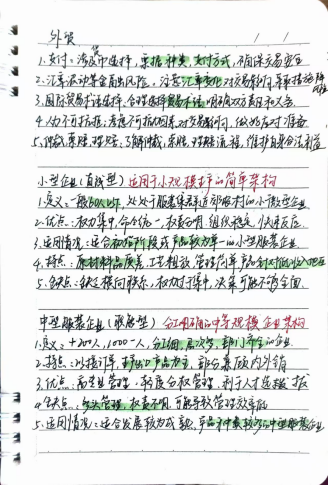 外贸
1.支付：涉及币选择，票据种类，支付方式，确保交易安全
2.汇率波动等金融风险，注意汇率变化对交易影响，采取措施降
3.国际贸易术语选择，合理选择贸易术语明确双方责任和义务
4.人为不可抗拒：考虑不可抗因素对交易影响，做好应对准备
5.仲裁、索赔、理赔：了解仲裁、索赔、理赔流程，维护自身合法利益
小型企业(直线型) 适用于小规模生产的简单架构
1.定义：一般50人以下，处于服装集群在近郊取材的小微型企业
2.优点：权力集中，命令统一，权责分明，组织稳定，快速反应.
3.适用情况：适合初始阶段或产品较为单一的小型服装企业
4.特点：原材料品质差，工艺粗放，管理简单，产品针对低收入地区
5.缺点：缺乏横向联系，权力过于集中，决策可能不够全面.
中型服装企业(职能型) 分工明确的中等规模企业架构
1.定义：200人，1000-人，分工细，层次多，部门齐全的企业.
2.特点：以接订单，主出口产品为主，部分兼顾内外销
3.优点：专业管理，制度分权管理，利于人才选拔
4.缺点：多头管理，权责不明，可能导致管理效率低
5.适用情况：适合发展较为成熟，产品种类较多的中型服装企业